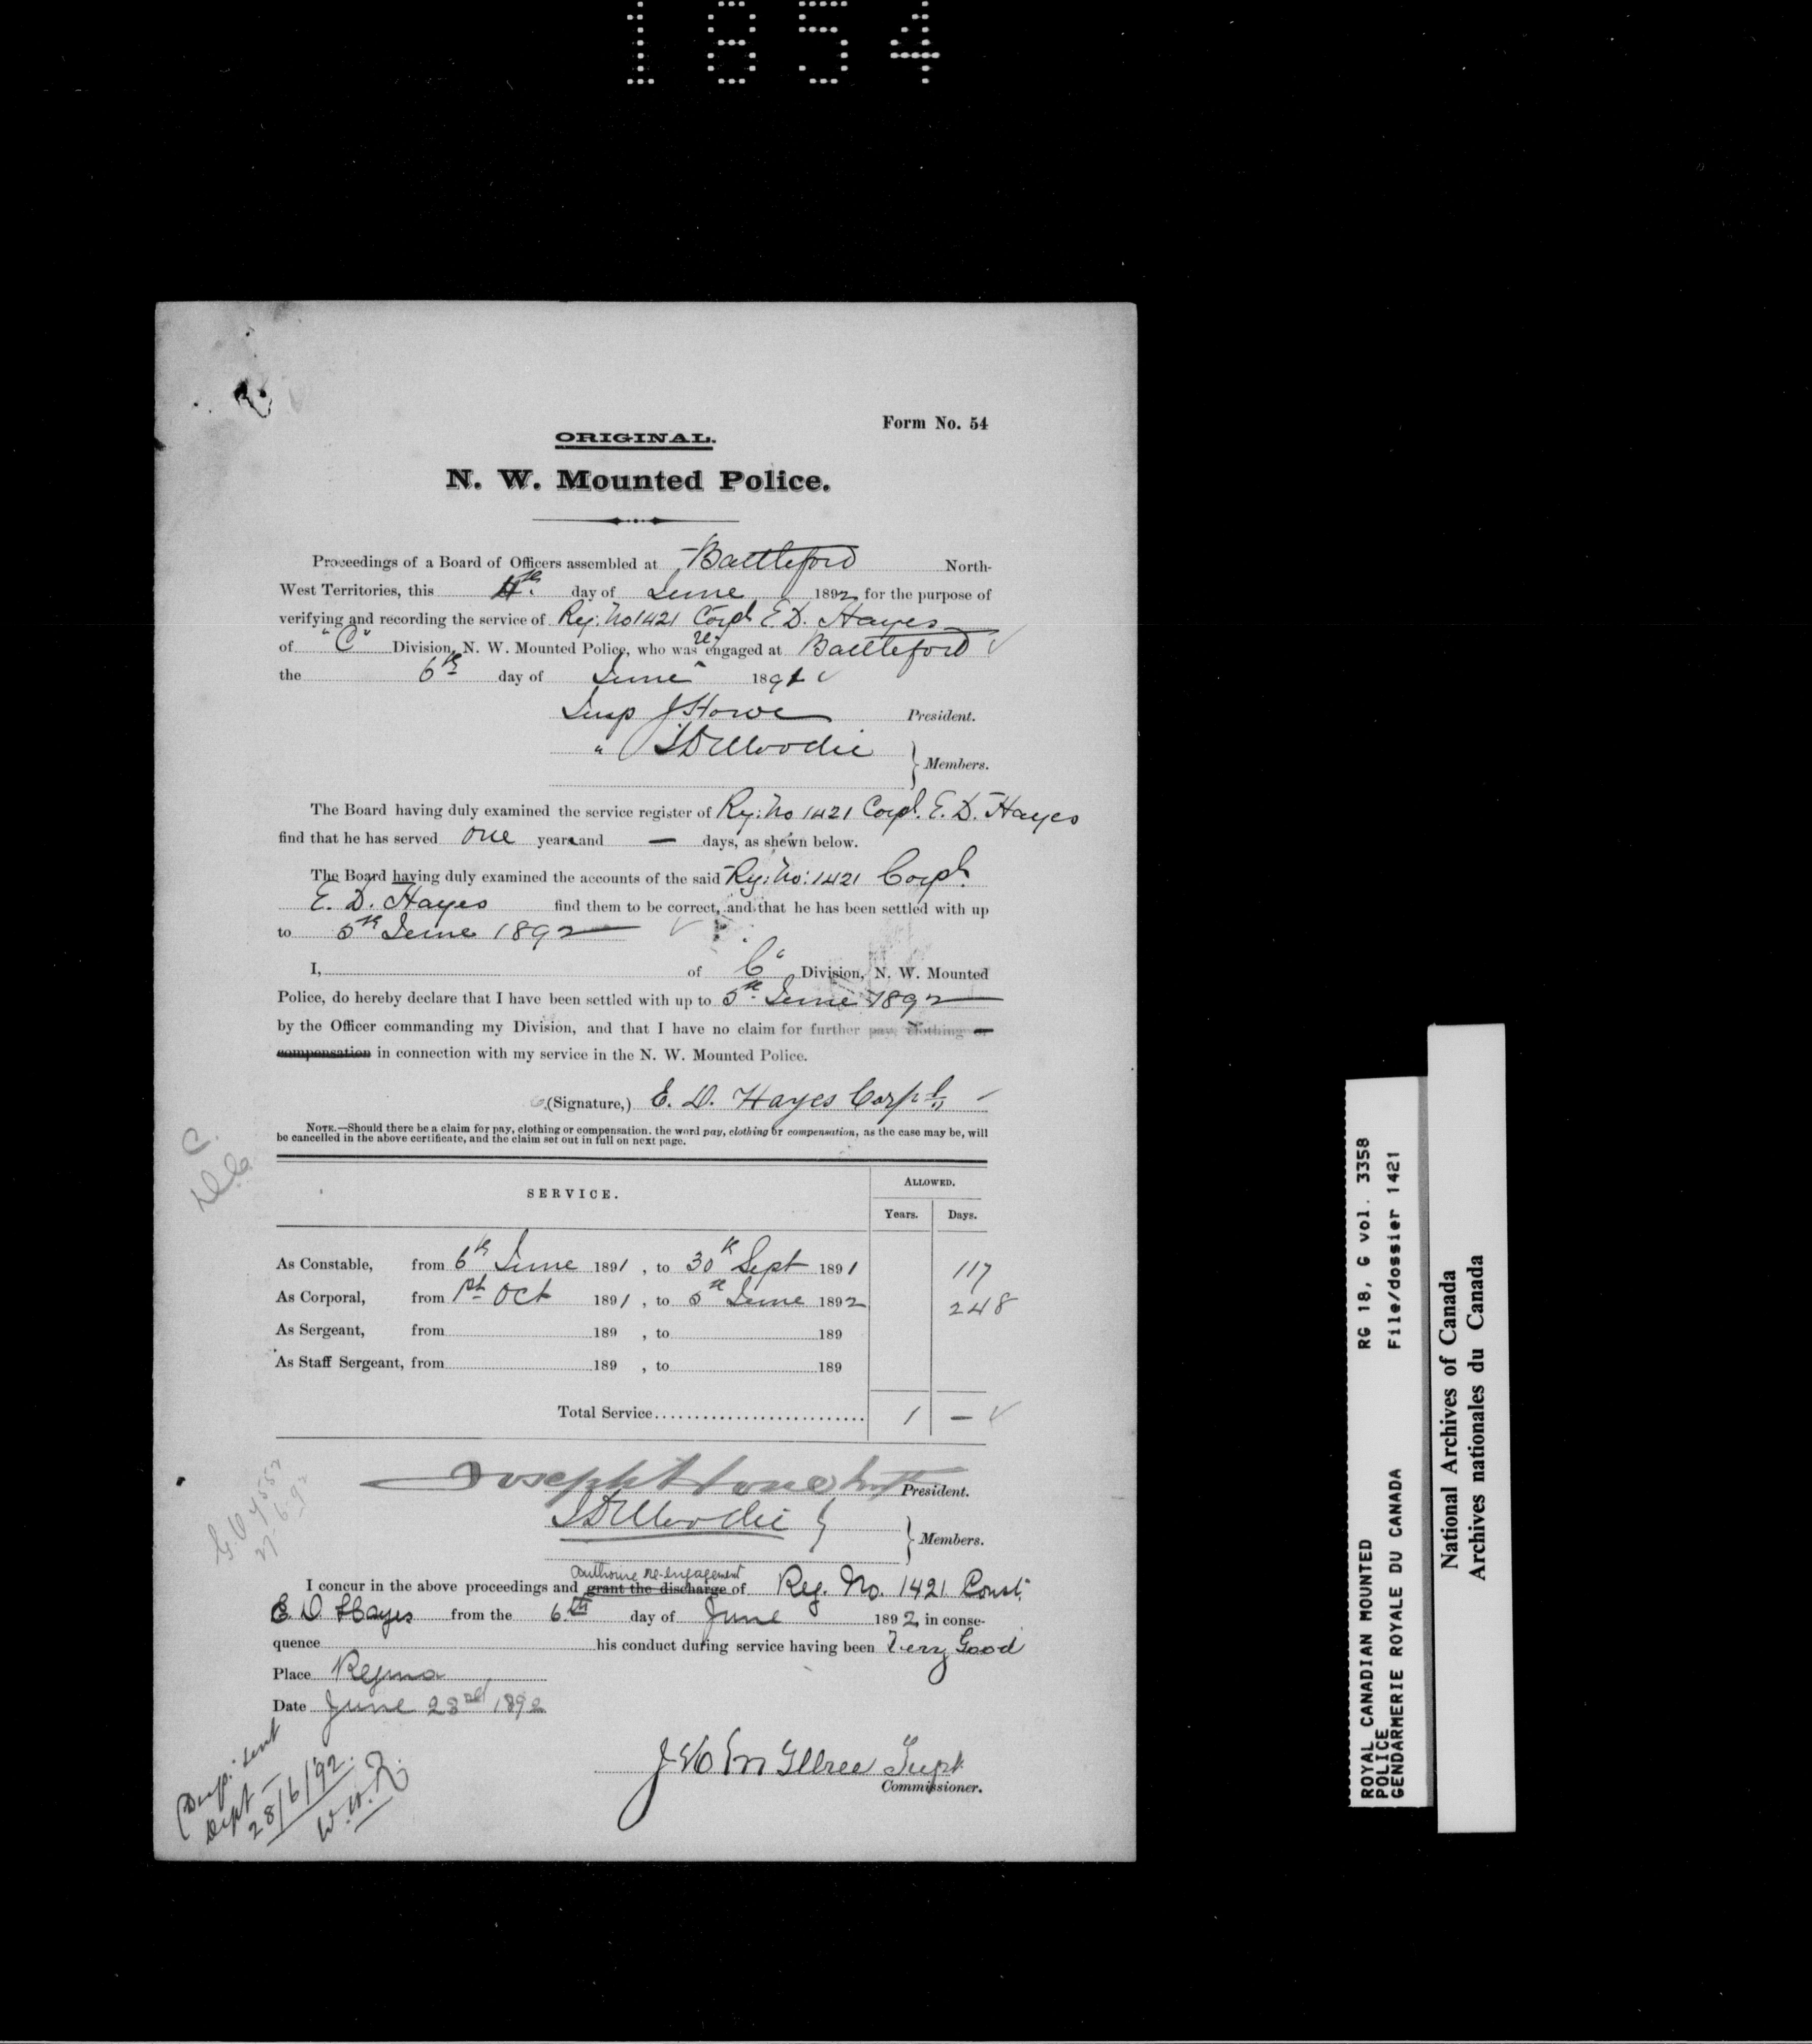 1854
Form No. 54
ORIGINAL.
N. W. Mounted Police.
Proceedings of a Board of Officers assembled at Battleford North-
West Territories, this day of June 1892 for the purpose of
verifying and recording the service of Reg: No 1421 Corpl E D. Hayes
of "C" Division, N. W. Mounted Police, who was re-engaged at Battleford
the 6th day of June 1891
Insp J Howe President.
" J D Moodie
Members.
The Board having duly examined the service register of Reg: No 1421 Corpl. E. D. Hayes
find that he has served one years and — days, as shewn below.
The Board having duly examined the accounts of the said Reg: No: 1421 Corpl.
E. D. Hayes find them to be correct, and that he has been settled with up
to 5th June 1892
I, of "C" Division, N. W. Mounted
Police, do hereby declare that I have been settled with up to 5th June 1892
by the Officer commanding my Division, and that I have no claim for further pay, clothing or
compensation in connection with my service in the N. W. Mounted Police.
(Signature,) E. D. Hayes Corpl,
NOTE.—Should there be a claim for pay, clothing or compensation, the word pay, clothing or compensation, as the case may be, will
be cancelled in the above certificate, and the claim set out in full on next page.
SERVICE.
ALLOWED.
Years. Days.
As Constable, from 6th June 1891, to 30th Sept 1891 117
As Corporal, from 1st Oct 1891, to 5th June 1892 248
As Sergeant, from 189 , to 189
As Staff Sergeant, from 189 , to 189
Total Service 1 —
Joseph Howe Insp President.
J D Moodie
Members.
authorise re-engagement
I concur in the above proceedings and grant the discharge of Reg. No. 1421 Const.
E. D. Hayes from the 6th day of June 1892 in conse-
quence his conduct during service having been Very Good
Place Regina
Date June 23rd 1892
J H McIllree Supt
Commissioner.
(Dup: sent
Dept —
28/6/92.
ROYAL CANADIAN MOUNTED RG 18, G vol. 3358
POLICE
GENDARMERIE ROYALE DU CANADA File/dossier 1421
National Archives of Canada
Archives nationales du Canada